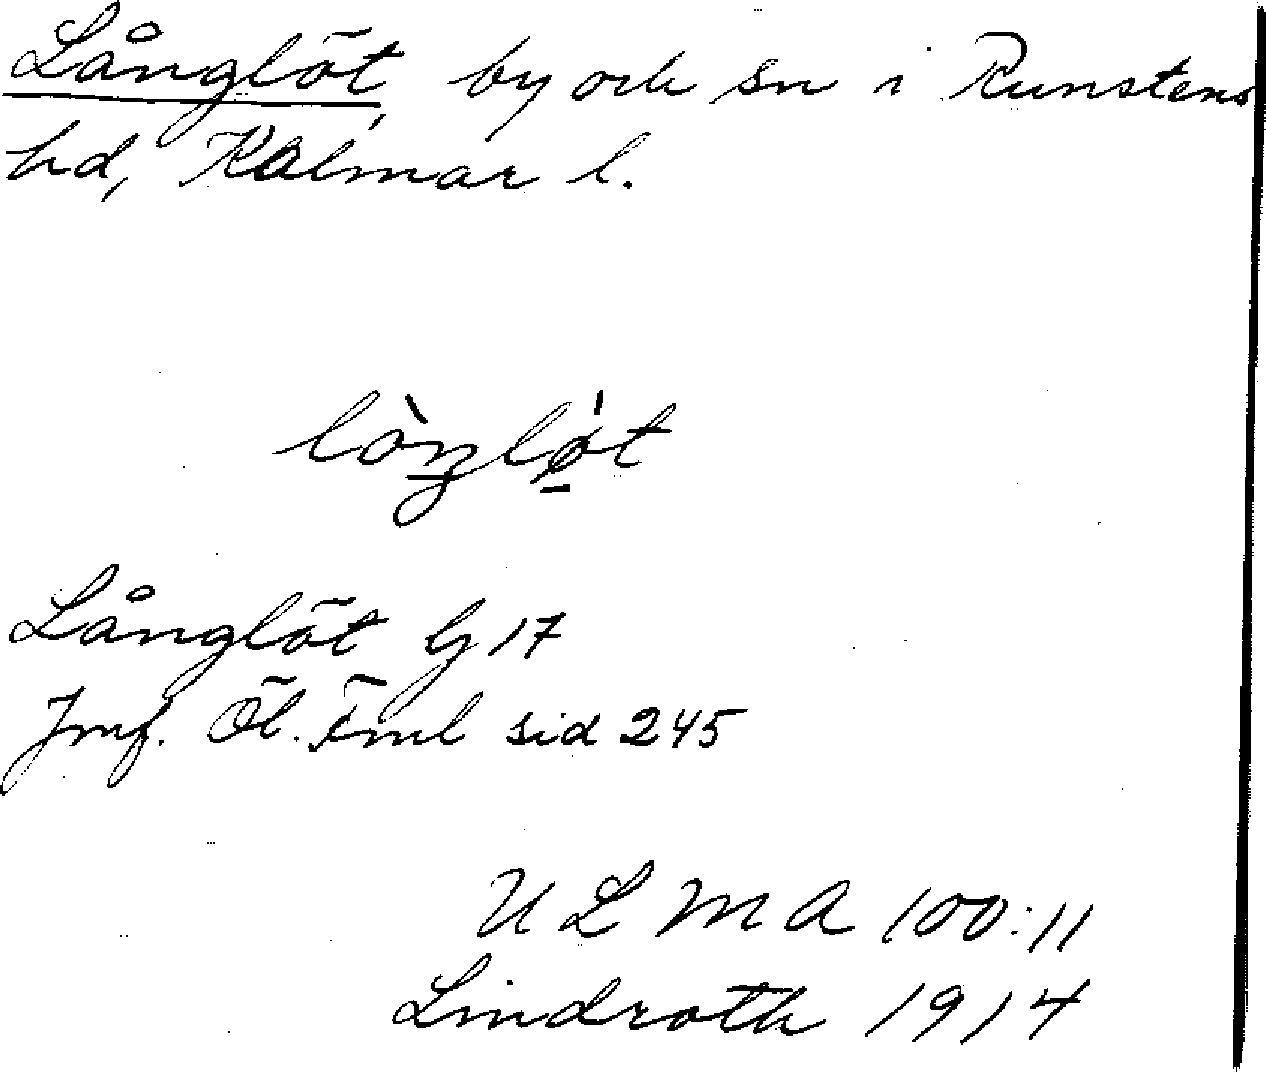 Långlöt, by och sn i Runstens
hd, Kalmar l.
Långlöt G 17
Jmf. Öl. Fml sid 245
U L M A 100:11
Lindroth 1914